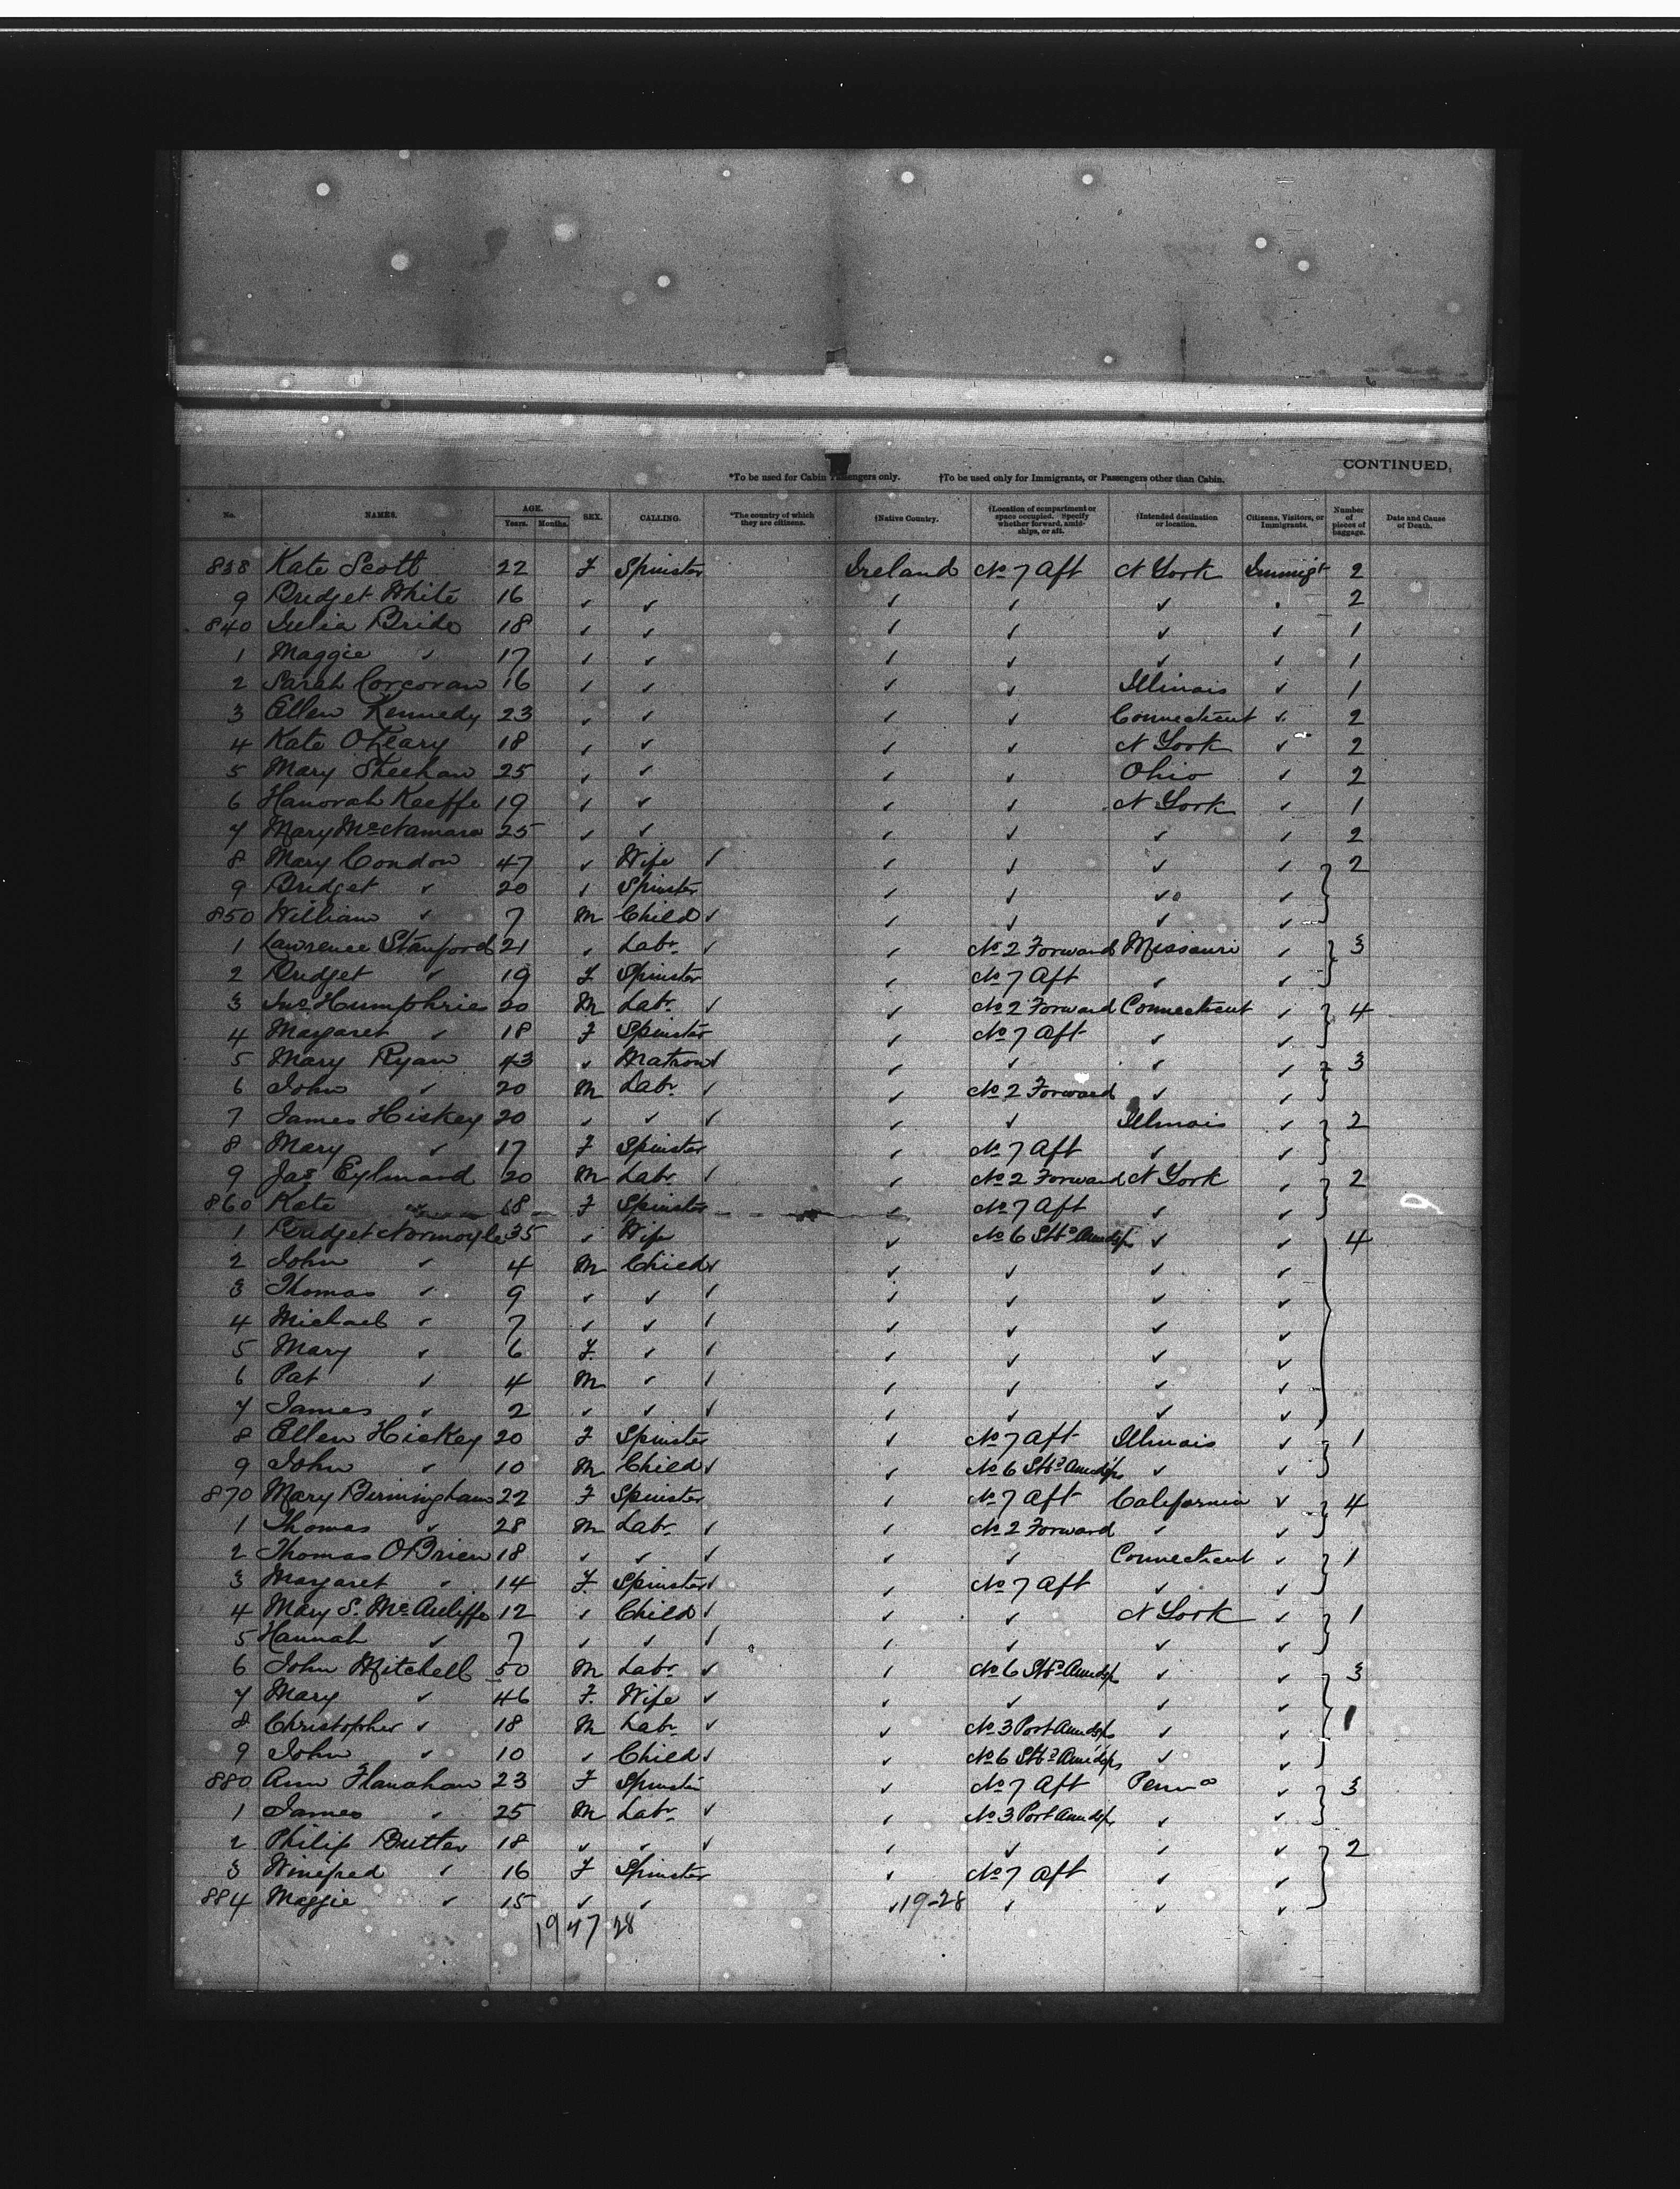 CONTINUED,
*To be used for Cabin Passengers only. †To be used only for Immigrants, or Passengers other than Cabin.
No. NAMES. AGE. Years. Months. SEX. CALLING. *The country of which they are citizens. †Native Country. †Location of compartment or space occupied. Specify whether forward, amidships, or aft. †Intended destination or location. Citizens, Visitors, or Immigrants. Number of pieces of baggage. Date and Cause of Death.
838 Kate Scott 22 F Spinster Ireland No 7 Aft N York Immigt 2
9 Bridget White 16 ✓ ✓ ✓ ✓ ✓ . 2
840 Julia Bride 18 ✓ ✓ ✓ ✓ ✓ ✓ 1
1 Maggie ✓ 17 ✓ ✓ ✓ ✓ ✓ ✓ 1
2 Sarah Corcoran 16 ✓ ✓ ✓ ✓ Illinois ✓ 1
3 Ellen Kennedy 23 ✓ ✓ ✓ ✓ Connecticut ✓ 2
4 Kate O'Leary 18 ✓ ✓ ✓ ✓ N York ✓ 2
5 Mary Sheehan 25 ✓ ✓ ✓ ✓ Ohio ✓ 2
6 Hanorah Keeffe 19 ✓ ✓ ✓ ✓ N York ✓ 1
7 Mary McNamara 25 ✓ ✓ ✓ ✓ ✓ ✓ 2
8 Mary Condon 47 ✓ Wife ✓ ✓ ✓ ✓ ✓ 2
9 Bridget ✓ 20 ✓ Spinster ✓ ✓ ✓ ✓
850 William ✓ 7 M Child ✓ ✓ ✓ ✓ ✓
1 Lawrence Stanford 21 ✓ Labr ✓ ✓ No 2 Forward Missouri ✓ 3
2 Bridget ✓ 19 F Spinster ✓ No 7 Aft ✓ ✓
3 Jno Humphries 20 M Labr ✓ ✓ No 2 Forward Connecticut ✓ 4
4 Margaret ✓ 18 F Spinster ✓ No 7 Aft ✓ ✓
5 Mary Ryan 43 ✓ Matron ✓ ✓ ✓ ✓ ✓ 3
6 John ✓ 20 M Labr ✓ ✓ No 2 Forward ✓ ✓
7 James Hickey 20 ✓ ✓ ✓ ✓ ✓ Illinois ✓ 2
8 Mary ✓ 17 F Spinster ✓ No 7 Aft ✓ ✓
9 Jas Eylmard 20 M Labr ✓ ✓ No 2 Forward N York ✓ 2
860 Kate 18 F Spinster ✓ No 7 Aft ✓ ✓
1 Bridget Normoyle 35 ✓ Wife ✓ No 6 Stbd Amidsps ✓ ✓ 4
2 John ✓ 4 M Child ✓ ✓ ✓ ✓ ✓
3 Thomas ✓ 9 ✓ ✓ ✓ ✓ ✓ ✓ ✓
4 Michael ✓ 7 ✓ ✓ ✓ ✓ ✓ ✓ ✓
5 Mary ✓ 6 F ✓ ✓ ✓ ✓ ✓ ✓
6 Pat ✓ 4 M ✓ ✓ ✓ ✓ ✓ ✓
7 James ✓ 2 ✓ ✓ ✓ ✓ ✓ ✓ ✓
8 Ellen Hickey 20 F Spinster ✓ No 7 Aft Illinois ✓ 1
9 John ✓ 10 M Child ✓ ✓ No 6 Stbd Amidsps ✓ ✓
870 Mary Birmingham 22 F Spinster ✓ No 7 Aft California ✓ 4
1 Thomas ✓ 28 M Labr ✓ ✓ No 2 Forward ✓ ✓
2 Thomas O'Brien 18 ✓ ✓ ✓ ✓ ✓ Connecticut ✓ 1
3 Margaret ✓ 14 F Spinster ✓ ✓ No 7 Aft ✓ ✓
4 Mary S. McAuliffe 12 ✓ Child ✓ ✓ ✓ N York ✓ 1
5 Hannah ✓ 7 ✓ ✓ ✓ ✓ ✓ ✓ ✓
6 John Mitchell 50 M Labr ✓ ✓ No 6 Stbd Amidsps ✓ ✓ 3
7 Mary ✓ 46 F Wife ✓ ✓ ✓ ✓ ✓
8 Christopher ✓ 18 M Labr ✓ ✓ No 3 Port Amidsps ✓ ✓ 1
9 John ✓ 10 ✓ Child ✓ ✓ No 6 Stbd Amidsps ✓ ✓
880 Ann Flanahan 23 F Spinster ✓ No 7 Aft Penna ✓ 3
1 James ✓ 25 M Labr ✓ ✓ No 3 Port Amidsps ✓ ✓
2 Philip Butler 18 ✓ ✓ ✓ ✓ ✓ ✓ ✓ 2
3 Winefred ✓ 16 F Spinster ✓ No 7 Aft ✓ ✓
884 Maggie ✓ 15 ✓ ✓ ✓ 19-28 ✓ ✓ ✓
19 47 28